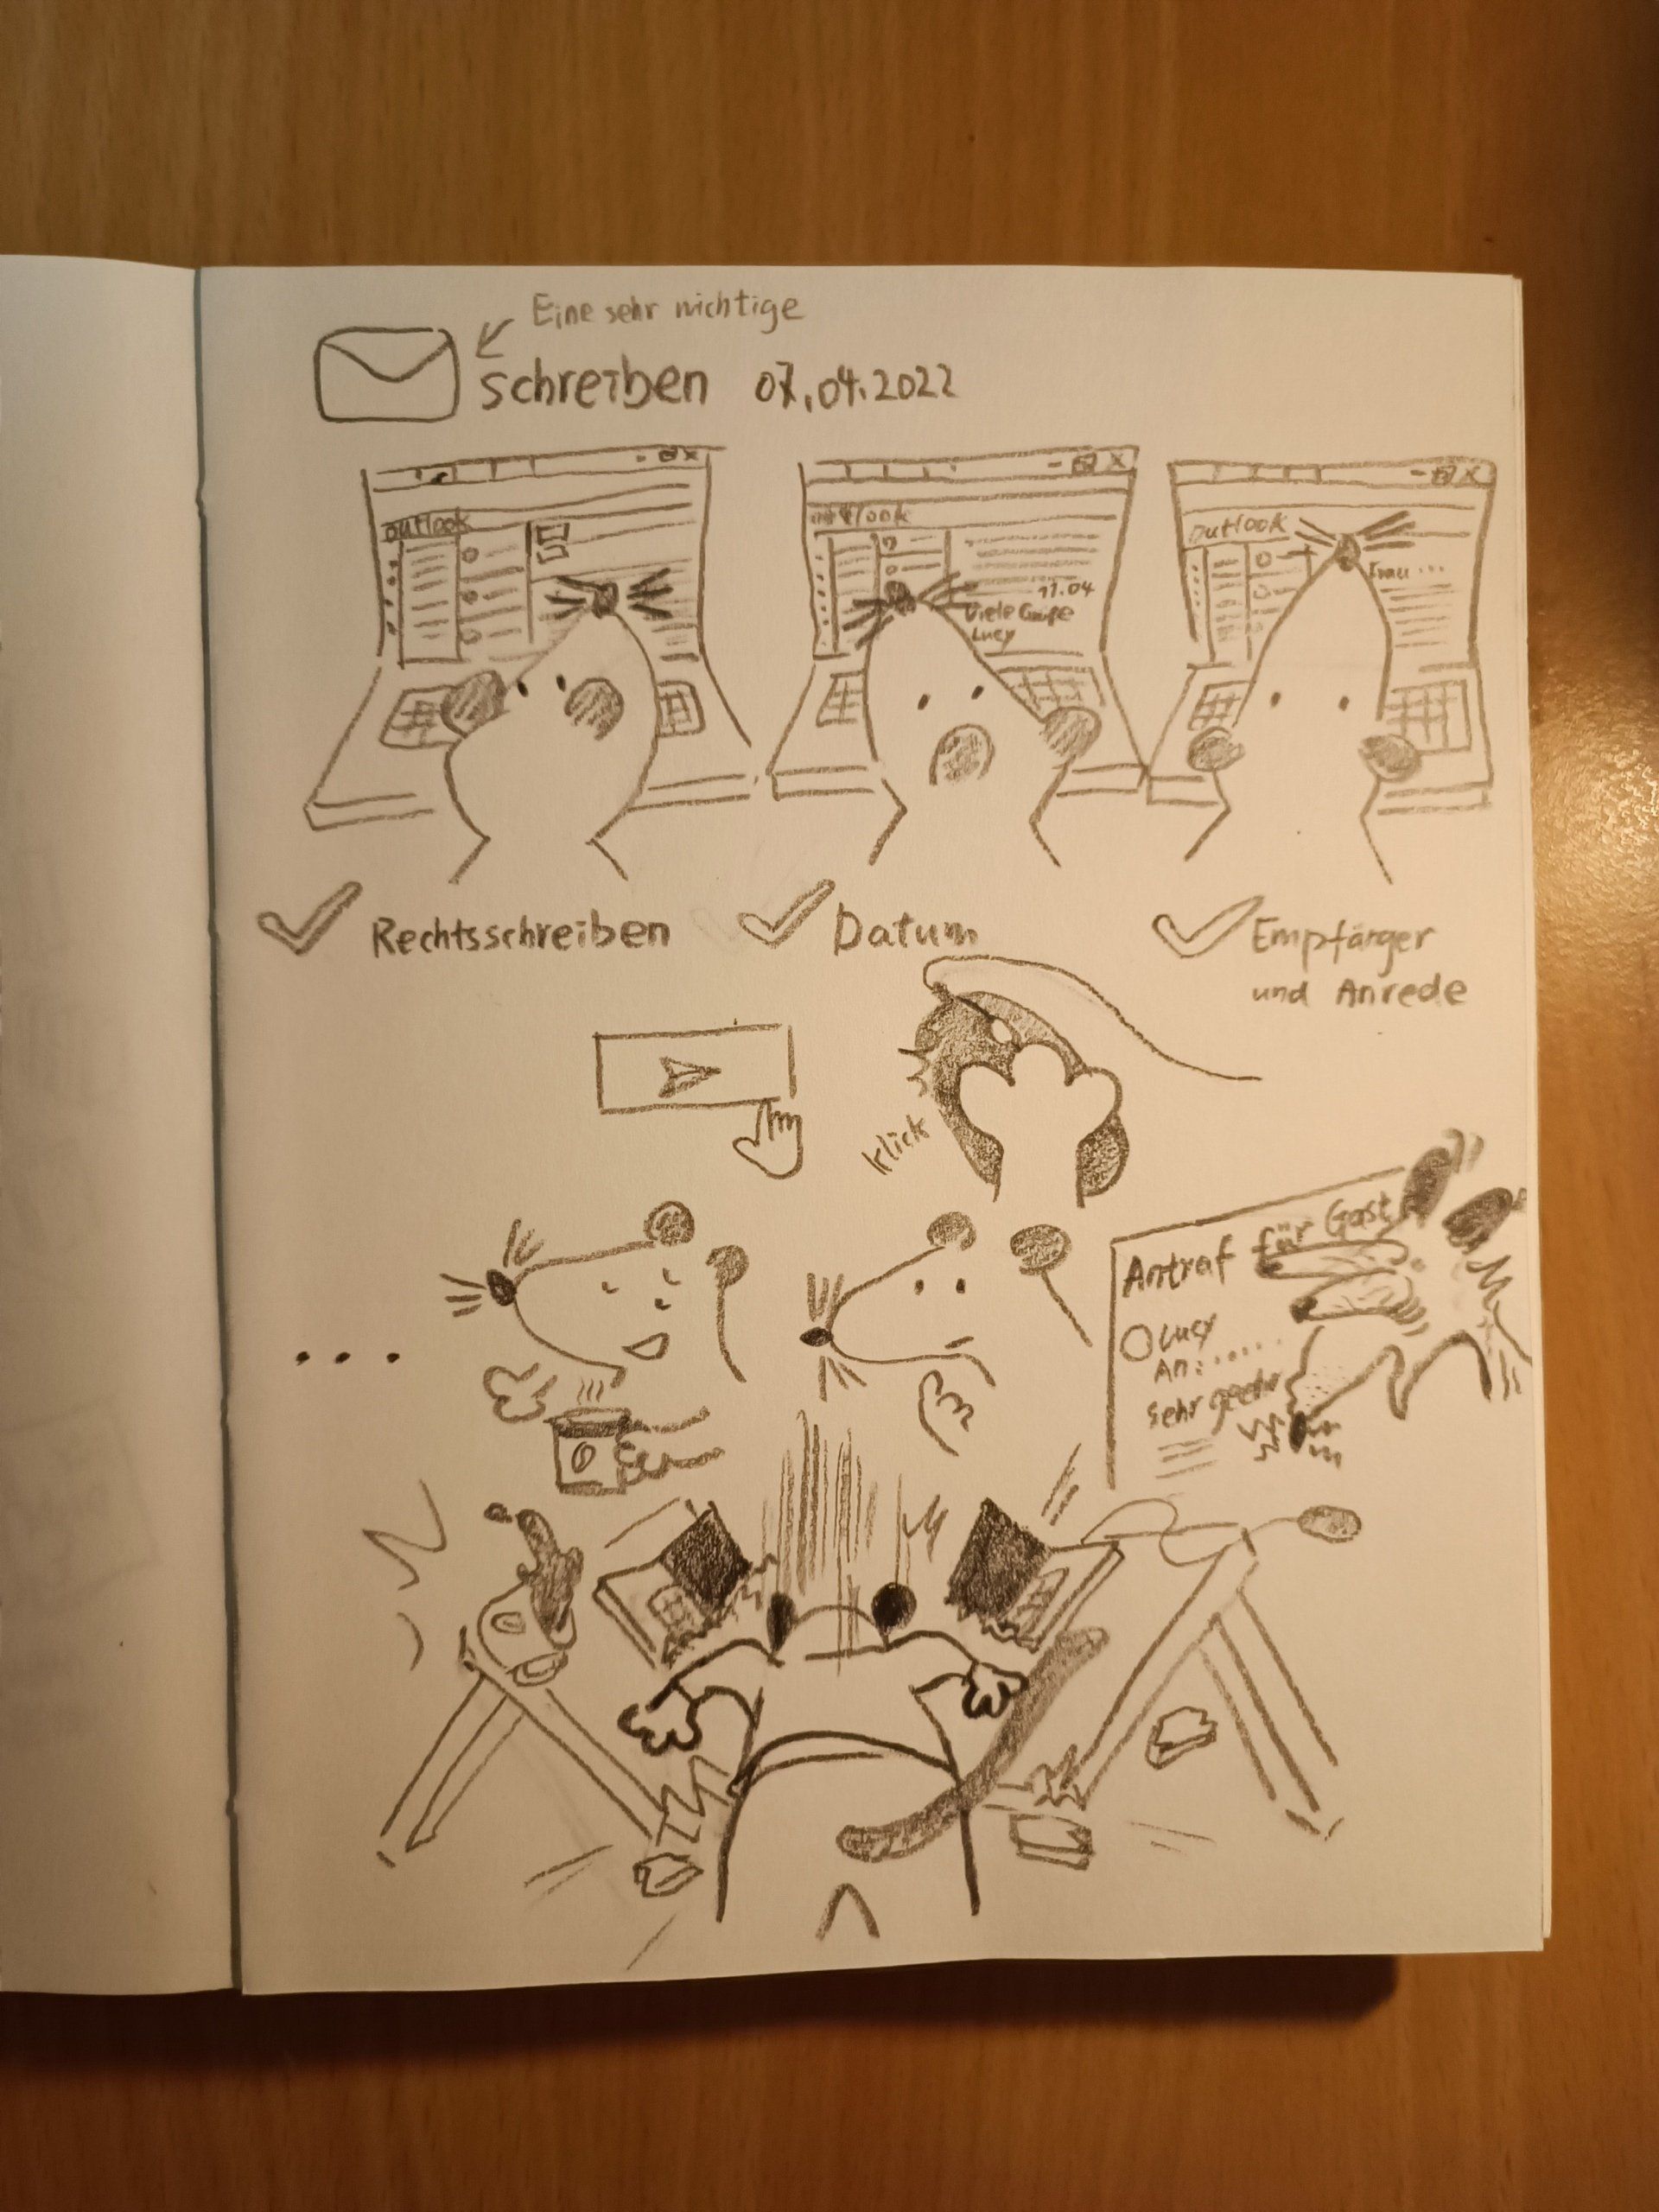 Eine sehr wichtige
schreiben 07.04.2022
outlook
outlook
11.04
Viele Grüße
Lucy
Outlook
Frau ...
Rechtsschreiben
Datum
Empfänger
und Anrede
klick
Antraf für Gast
Lucy
An: ......
sehr geehr
...